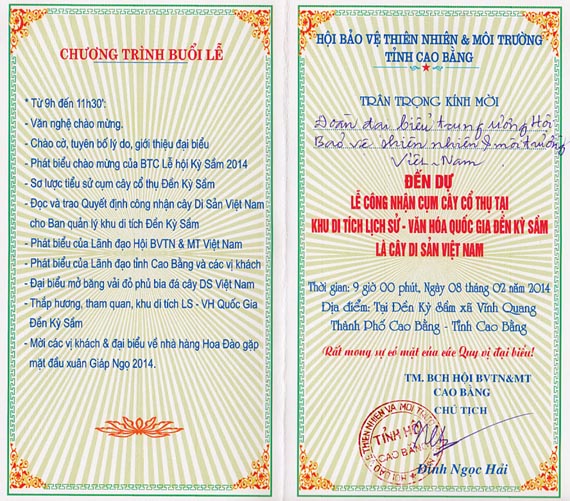 CHƯƠNG TRÌNH BUỔI LỄ
* Từ 9h đến 11h30':
- Văn nghệ chào mừng.
- Chào cờ, tuyên bố lý do, giới thiệu đại biểu
- Phát biểu chào mừng của BTC Lễ hội Kỳ Sầm 2014
- Sơ lược tiểu sử cụm cây cổ thụ Đền Kỳ Sầm
- Đọc và trao Quyết định công nhận cây Di Sản Việt Nam
cho Ban quản lý khu di tích Đền Kỳ Sầm
- Phát biểu của Lãnh đạo Hội BVTN & MT Việt Nam
- Phát biểu của Lãnh đạo tỉnh Cao Bằng và các vị khách
- Đại biểu mở băng vải đỏ phủ bia đá cây DS Việt Nam
- Thắp hương, tham quan, khu di tích LS - VH Quốc Gia
Đền Kỳ Sầm
- Mời các vị khách & đại biểu về nhà hàng Hoa Đào gặp
mặt đầu xuân Giáp Ngọ 2014.
HỘI BẢO VỆ THIÊN NHIÊN & MÔI TRƯỜNG
TỈNH CAO BẰNG
TRÂN TRỌNG KÍNH MỜI
Đoàn đại biểu trung ương Hội
Bảo vệ thiên nhiên & môi trường
Việt Nam
ĐẾN DỰ
LỄ CÔNG NHẬN CỤM CÂY CỔ THỤ TẠI
KHU DI TÍCH LỊCH SỬ - VĂN HÓA QUỐC GIA ĐỀN KỲ SẦM
LÀ CÂY DI SẢN VIỆT NAM
Thời gian: 9 giờ 00 phút, Ngày 08 tháng 02 năm 2014
Địa điểm: Tại Đền Kỳ Sầm xã Vĩnh Quang
Thành Phố Cao Bằng - Tỉnh Cao Bằng
Rất mong sự có mặt của các Quý vị đại biểu!
TM. BCH HỘI BVTN&MT
CAO BẰNG
CHỦ TỊCH
TỈNH HỘI
CAO BẰNG
Đinh Ngọc Hải